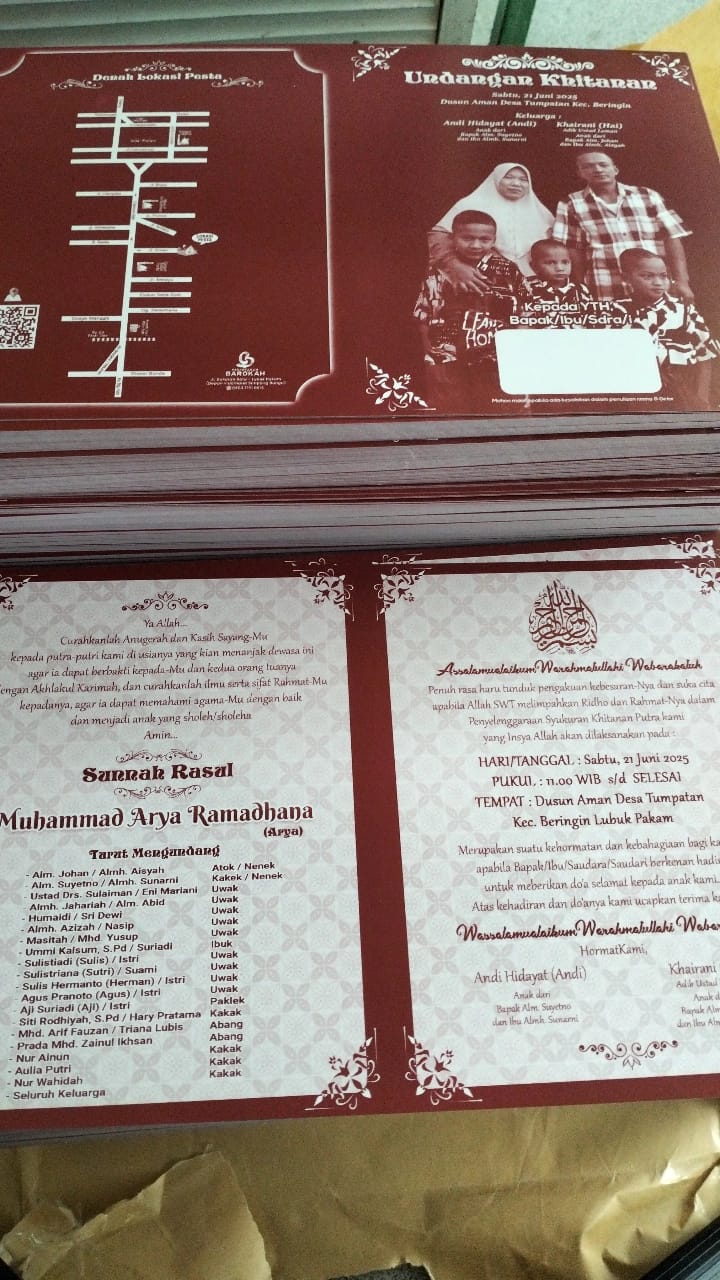 Denah Lokasi Pesta
LOKASI
PESTA
BAROKAH
Undangan Khitanan
Sabtu, 21 Juni 2025
Dusun Aman Desa Tumpatan Kec. Beringin
Keluarga :
Andi Hidayat (Andi)
Anak dari
Bapak Alm. Suyetno
dan Ibu Almh. Sunarni
Khairani (Hai)
Adik Ustad Leman
Anak dari
Bapak Alm. Johan
dan Ibu Almh. Aisyah
Kepada YTH,
Bapak/Ibu/Sdra/i
Mohon maaf apabila ada kesalahan dalam penulisan nama & Gelar
Ya Allah...
Curahkanlah Anugerah dan Kasih Sayang-Mu
kepada putra-putri kami di usianya yang kian menanjak dewasa ini
agar ia dapat berbakti kepada-Mu dan kedua orang tuanya
engan Akhlakul Karimah, dan curahkanlah ilmu serta sifat Rahmat-Mu
kepadanya, agar ia dapat memahami agama-Mu dengan baik
dan menjadi anak yang sholeh/sholeha
Amin...
Sunnah Rasul
Muhammad Arya Ramadhana
(Arya)
Turut Mengundang
- Alm. Johan / Almh. Aisyah Atok / Nenek
- Alm. Suyetno / Almh. Sunarni Kakek / Nenek
- Ustad Drs. Sulaiman / Eni Mariani Uwak
- Almh. Jahariah / Alm. Abid Uwak
- Humaidi / Sri Dewi Uwak
- Almh. Azizah / Nasip Uwak
- Masitah / Mhd. Yusup Uwak
- Ummi Kalsum, S.Pd / Suriadi Ibuk
- Sulistiadi (Sulis) / Istri Uwak
- Sulistriana (Sutri) / Suami Uwak
- Sulis Hermanto (Herman) / Istri Uwak
- Agus Pranoto (Agus) / Istri Uwak
- Aji Suriadi (Aji) / Istri Paklek
- Siti Rodhiyah, S.Pd / Hary Pratama Kakak
- Mhd. Arif Fauzan / Triana Lubis Abang
- Prada Mhd. Zainul Ikhsan Abang
- Nur Ainun Kakak
- Aulia Putri Kakak
- Nur Wahidah Kakak
- Seluruh Keluarga
Assalamualaikum Warahmatullahi Wabarakatuh
Penuh rasa haru tunduk pengakuan kebesaran-Nya dan suka cita
apabila Allah SWT melimpahkan Ridho dan Rahmat-Nya dalam
Penyelenggaraan Syukuran Khitanan Putra kami
yang Insya Allah akan dilaksanakan pada :
HARI/TANGGAL : Sabtu, 21 Juni 2025
PUKUL : 11.00 WIB s/d SELESAI
TEMPAT : Dusun Aman Desa Tumpatan
Kec. Beringin Lubuk Pakam
Merupakan suatu kehormatan dan kebahagiaan bagi ka
apabila Bapak/Ibu/Saudara/Saudari berkenan hadi
untuk meberikan do'a selamat kepada anak kami.
Atas kehadiran dan do'anya kami ucapkan terima k
Wassalamualaikum Warahmatullahi Wabar
HormatKami,
Andi Hidayat (Andi)
Anak dari
Bapak Alm. Suyetno
dan Ibu Almh. Sunarni
Khairani
Adik Ustad
Anak d
Bapak Alm
dan Ibu Alm